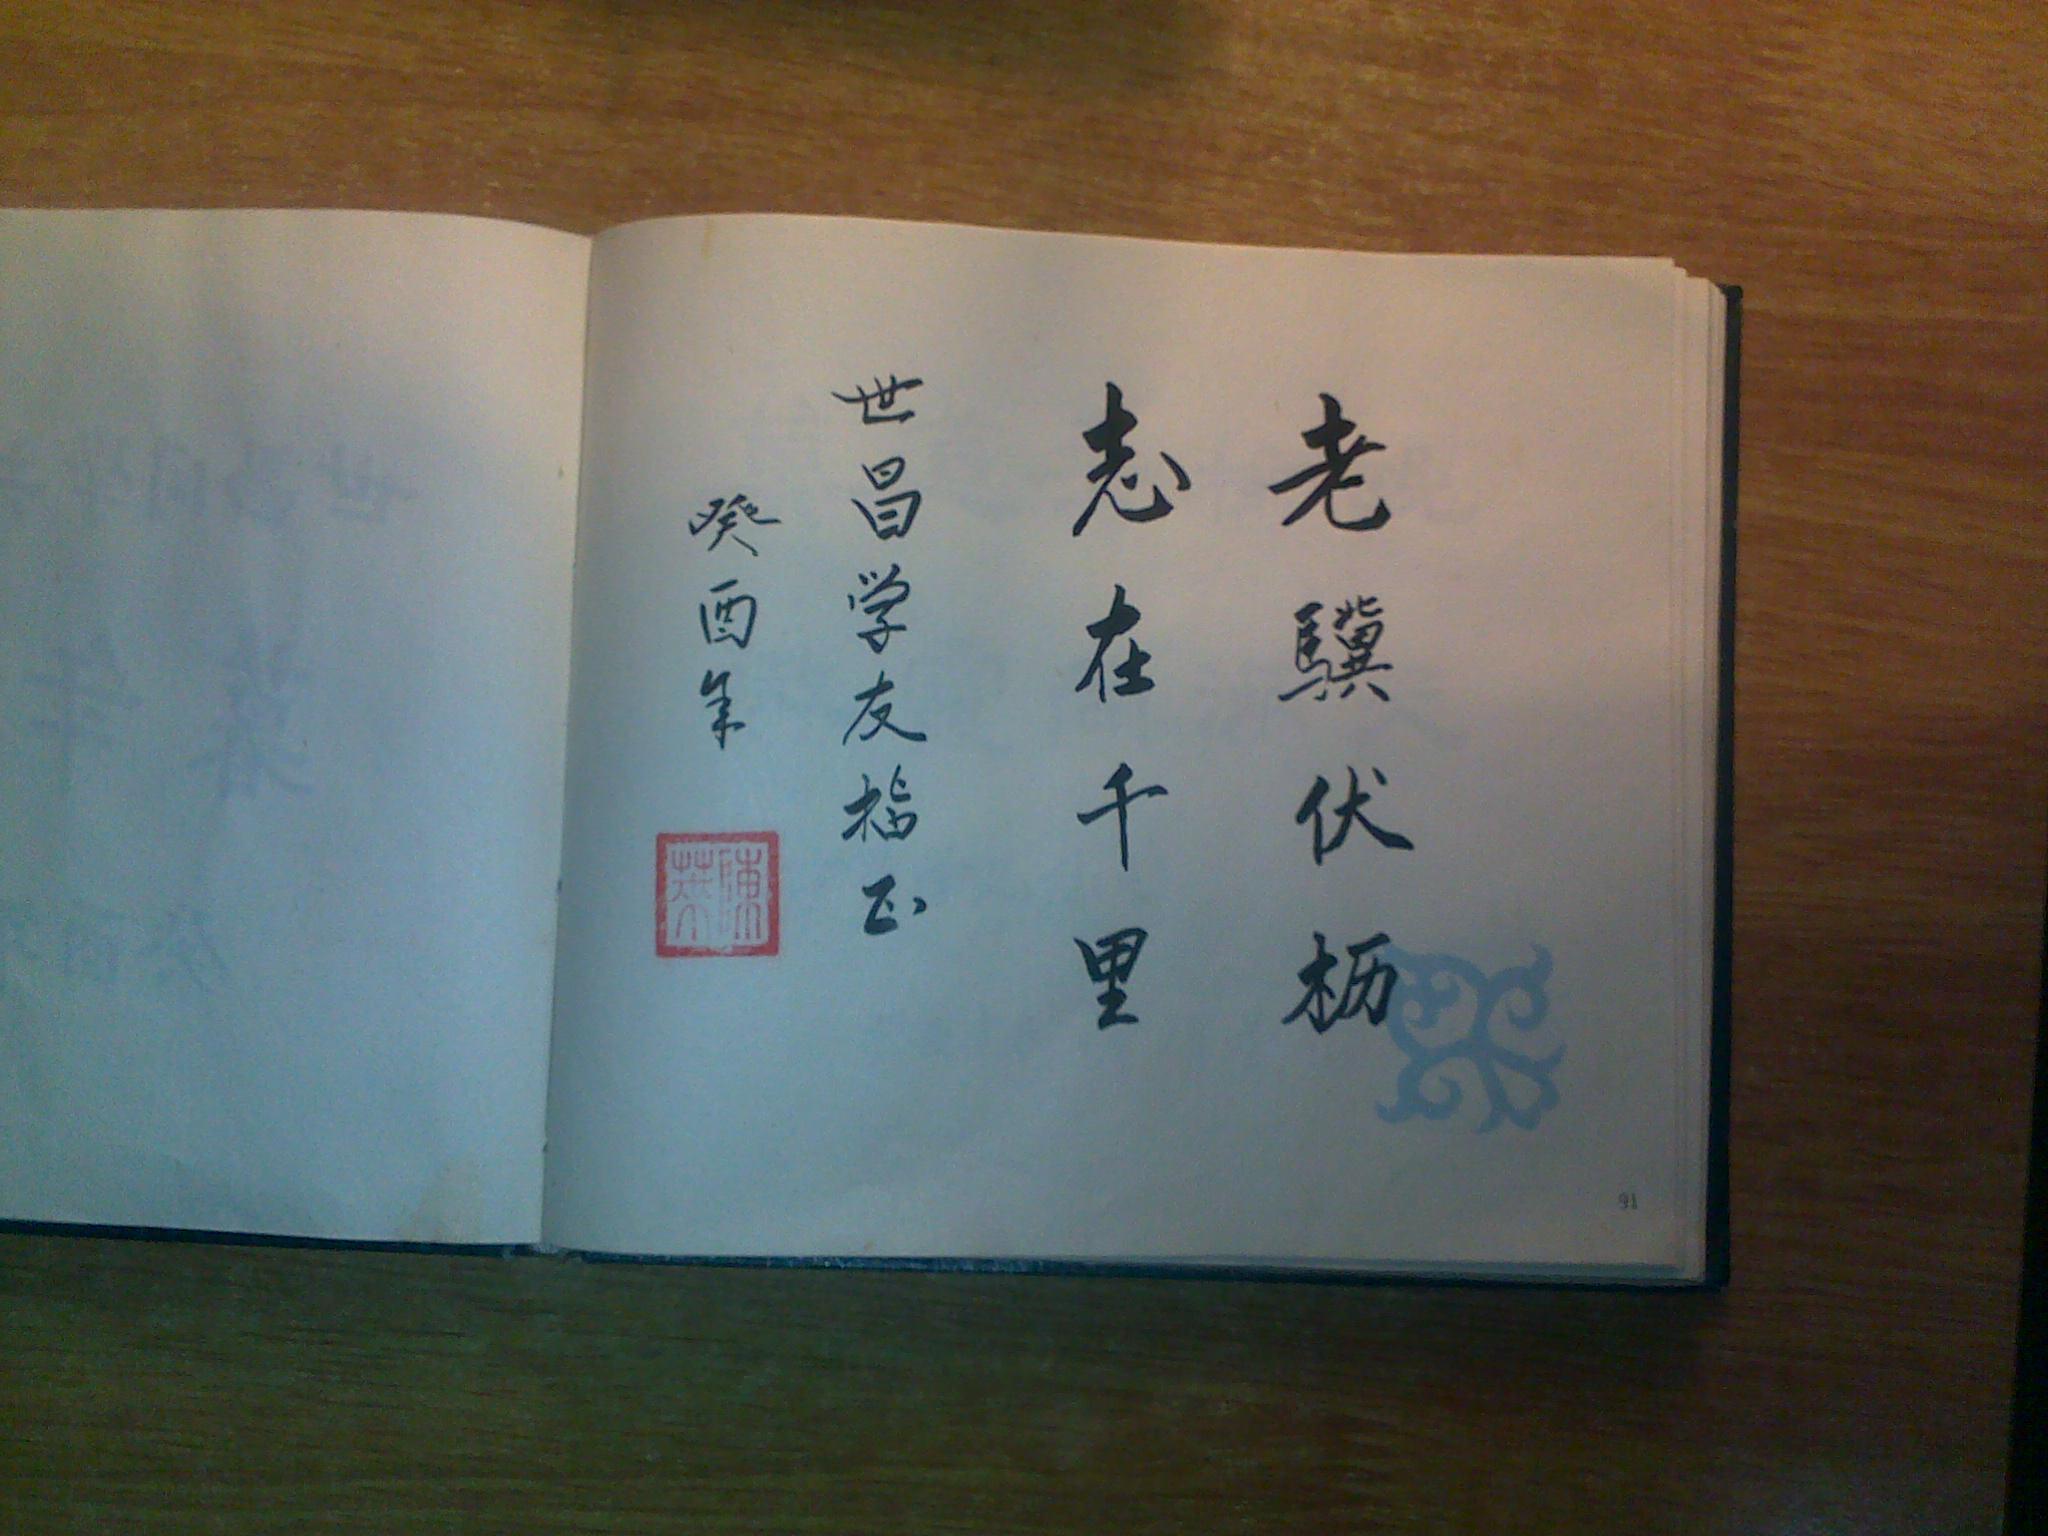 老骥伏枥
志在千里
世昌学友指正
癸酉年
陳英
91